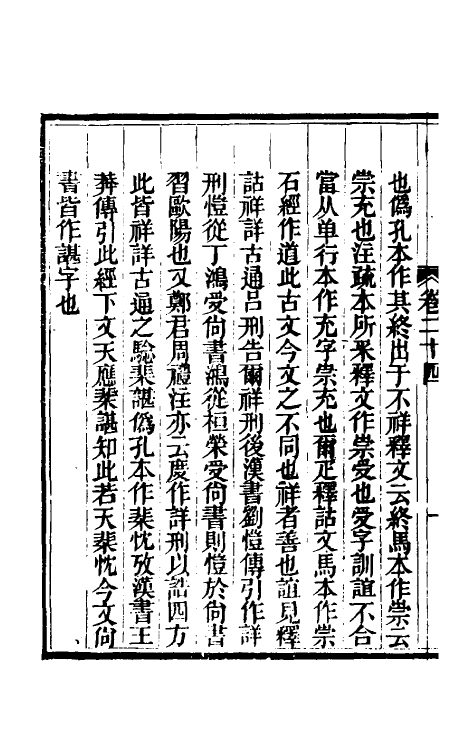 卷二十四
一
也僞孔本作其終出于不祥釋文云終馬本作崇云
崇充也注疏本所采釋文作崇受也受字訓誼不合
當从单行本作充字崇充也爾疋釋詁文馬本作崇
石經作道此古文今文之不同也祥者善也誼見釋
詁祥詳古通吕刑告爾祥刑後漢書劉愷傳引作詳
刑愷從丁鴻受尙書鴻從桓榮受尙書則愷於尙書
習歐陽也又鄭君周禮注亦云度作詳刑以詰四方
此皆祥詳古通之驗棐諶僞孔本作棐忱攷漢書王
莽傳引此經下文天應棐諶知此若天棐忱今文尙
書皆作諶字也